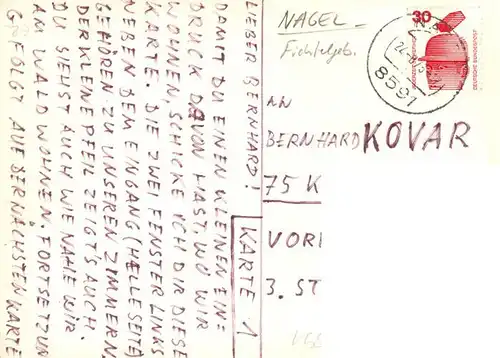 LIEBER BERNHARD!
DAMIT DU EINEN KLEINEN EIN=
DRUCK DAVON HAST, WO WIR
WOHNEN, SCHICKE ICH DIR DIESE
KARTE. DIE ZWEI FENSTER LINKS
NEBEN DEM EINGANG (HELLE SEITE)
GEHÖREN ZU UNSEREN ZIMMERN
DER KLEINE PFEIL ZEIGT'S AUCH.
DU SIEHST AUCH WIE NAHE WIR
AM WALD WOHNEN. FORTSETZUN
G FOLGT AUF DER NÄCHSTEN KARTE
KARTE 1
NAGEL
Fichtelgeb.
30
DEUTSCHE BUNDESPOST
8591
AN
BERNHARD KOVAR
75 K
VORI
3. ST